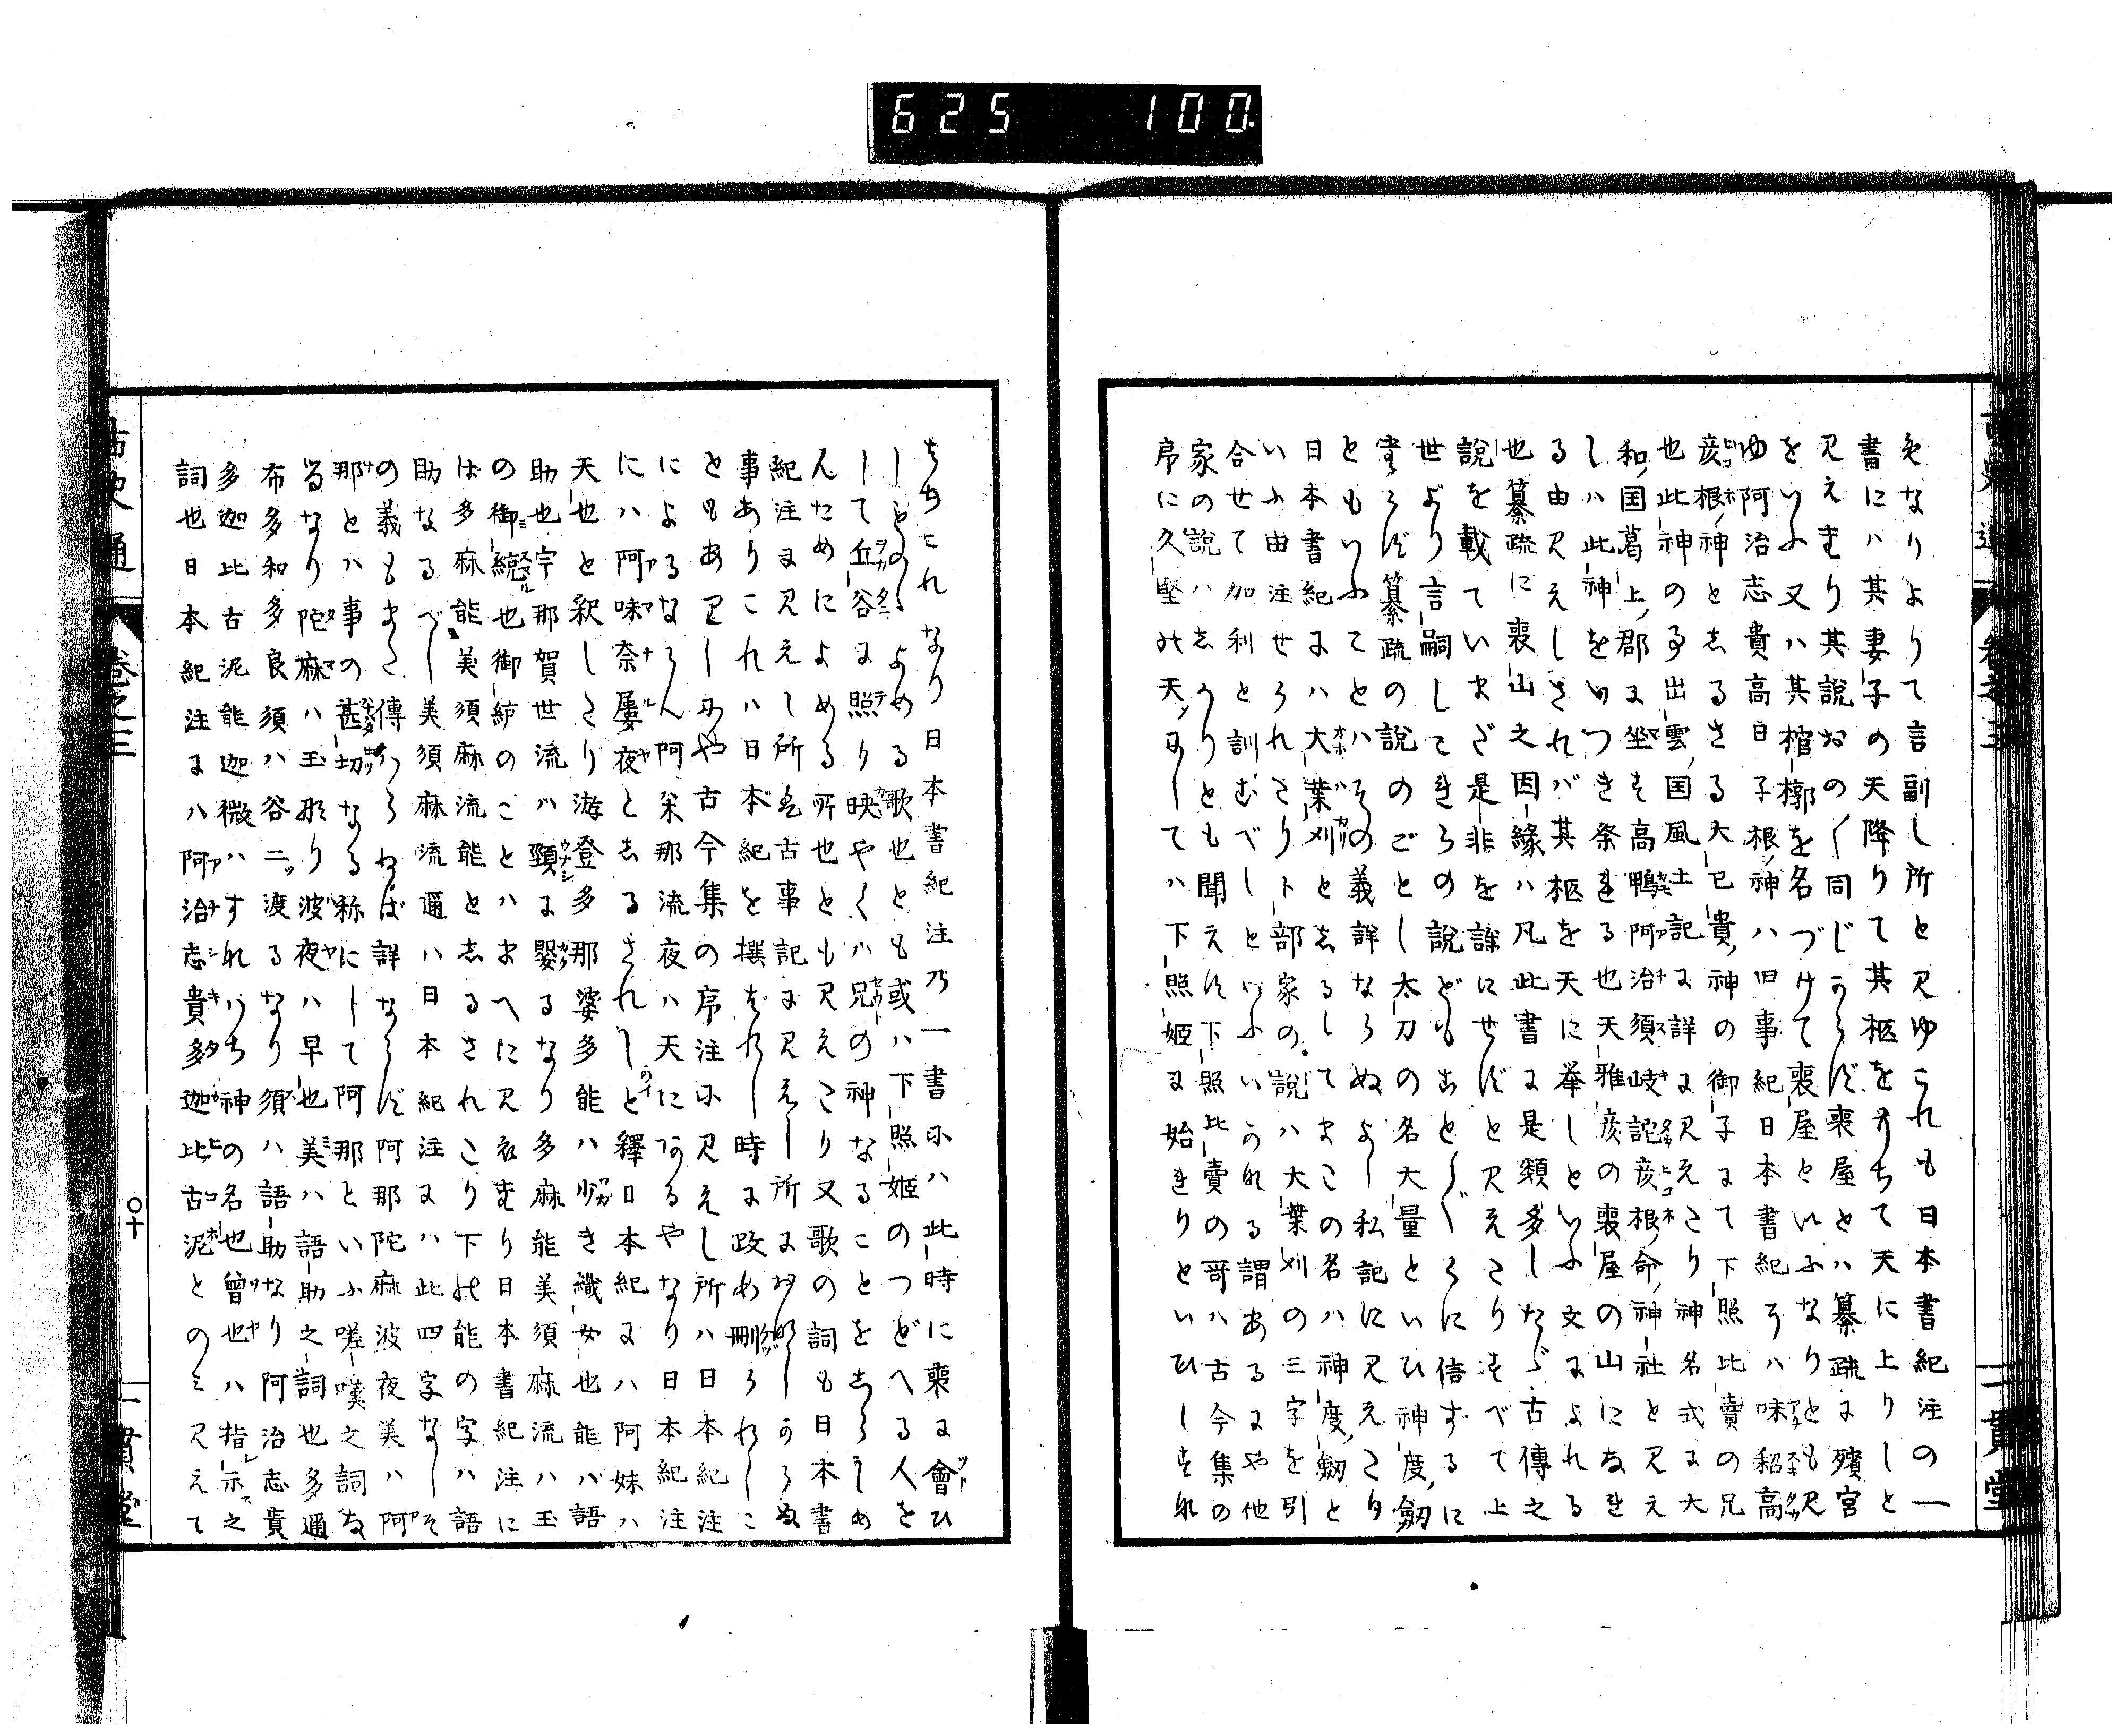 625 100.
えなりよりて言副し所と見ゆこれも日本書紀注の一
書にハ其妻子の天降りて其柩をもちて天に上りしと
見えたり其説おの〱同じからず喪屋とハ纂疏に殯宮
をいふ又ハ其棺槨を名づけて喪屋といふなりとも見
ゆ阿治志貴高日子根神ハ旧事紀日本書紀にハ味耜高
彦根神としるさる大己貴神の御子にて下照比賣の兄
也此神の事出雲国風土記に詳に見えたり神名式に大
和国葛上郡に坐す高鴨阿治須岐詫彦根命神社と見え
しハ此神をいつき祭れる也天雅彦の喪屋の山になれ
る由見えしされバ其柩を天に挙しといふ文によれる
也纂疏に喪山之因縁ハ凡此書に是類多したゞ古傳之
説を載ていまだ是非を詳にせずと見えたりすべて上
世より言嗣してきろの説どもことごとくに信ずるに
たらず纂疏の説のごとし太刀の名大量といひ神度劔
ともいふてとハその義詳ならぬよし私記に見えたり
日本書紀にハ大葉刈としるしてまたの名ハ神度劔と
いふ由注せられたり卜部家の説ハ大葉刈の三字を引
合せて加利と訓むべしといふいかれる謂あるにや他
家の説ハしかりとも聞えず下照比賣の哥ハ古今集の
序に久堅の天にしてハ下照姫に始きりといひしすれ
古史通 巻之三 一貫堂
すちこれなり日本書紀注乃一書にハ此時に喪に會ひ
しとのゝよめる歌也とも或ハ下照姫のつどへる人を
して丘谷に照り映やくハ兄の神なることをしらしめ
んためによめる所也とも見えたり又歌の詞も日本書
紀注に見えし所と古事記に見えし所におなじからぬ
事ありこれハ日本紀を撰ばれし時に政め刪られしこ
ともあるしにや古今集の序注に見えし所ハ日本紀注
によるならん阿米那流夜ハ天にあるやなり日本紀注
にハ阿味奈屡夜としるされしと釋日本紀にハ阿妹ハ
天也と釈したり游登多那婆多能ハ少き織女也能ハ語
助也宇那賀世流ハ頸に嬰るなり多麻能美須麻流ハ玉
の御統也御統のことハまへに見えたり日本書紀注に
は多麻能美須麻流能としるされたり下の能の字ハ語
助なるべし美須麻流邇ハ日本紀注にハ此四字なしそ
の義もまた傳ハらねば詳ならず阿那陀麻波夜美ハ阿
那とハ事の甚切なる称にして阿那といふ嗟嘆之詞な
るなり陀麻ハ玉那り波夜ハ早也美ハ語助之詞也多邇
布多和多良須ハ谷二ッ渡るなり須ハ語助なり阿治志貴
多迦比古泥能迦微ハすれハち神の名也曾也ハ指示之
詞也日本紀注にハ阿治志貴多迦比古泥とのミ見えて
古史通 巻之三 〇十 一貫堂